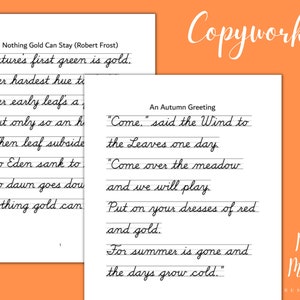 Copywork
Nothing Gold Can Stay (Robert Frost)
first green is gold,
hardest hue to
early leaf's a
only so an h
leaf subside
Eden sank to
dawn goes dow
gold can
1
An Autumn Greeting
"Come," said the Wind to
the Leaves one day.
"Come over the meadow
and we will play.
Put on your dresses of red
and gold.
For summer is gone and
the days grow cold."